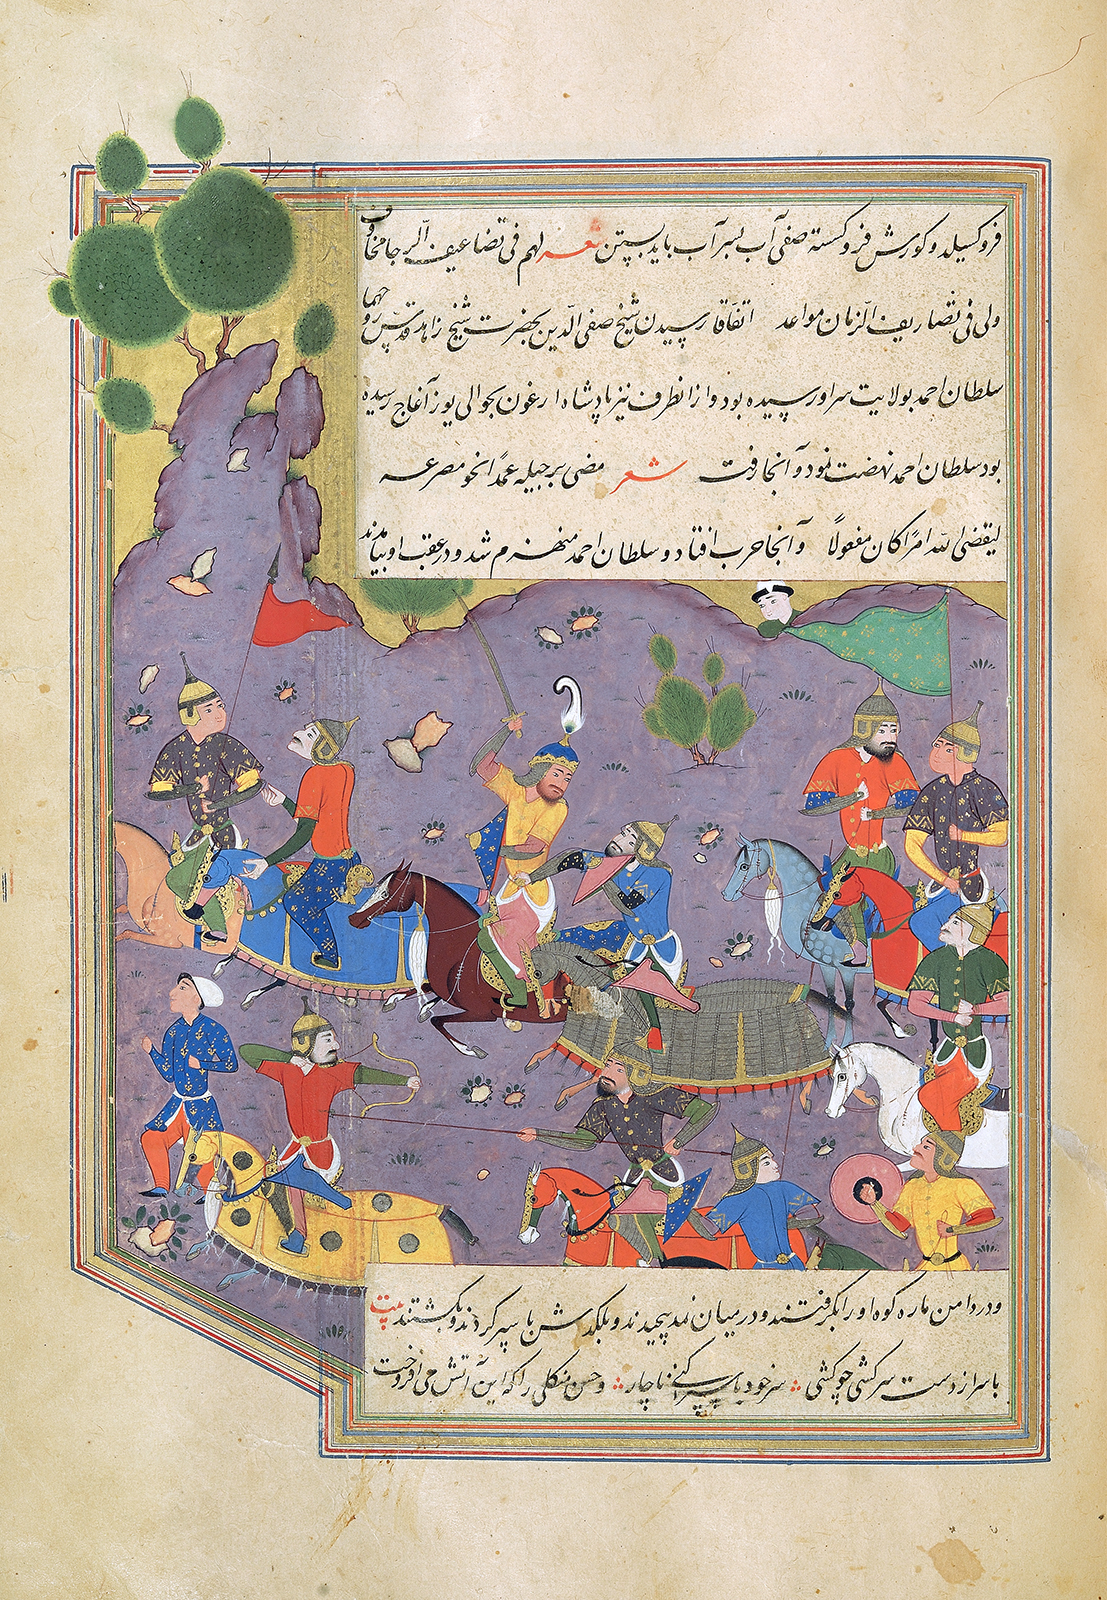 فروکسیلد و کورش فروکسته صفی آب بسر آب باید بستن شعر لهم فی تضاعیف الرجا مخاوف
ولی فی تصاریف الزمان مواعد اتفاقا رسیدن شیخ صفی الدین بحضرت شیخ زاهد قدس روحهما
سلطان احمد بولایت سراو رسیده بود و از انطرف نیز پادشاه ارغون بحوالی یوز آغاج رسیده
بود سلطان احمد نهضت نمود و آنجا رفت شعر مضی بر جبیله عمدًا نحو مصرعه
لیقضی الله امرًا کان مفعولًا و آنجا حرب افتاد و سلطان احمد منهزم شد و در عقب او بیامدند
و در دامن ماره کوه او را بگرفتند و در میان نمد پیچیدند و بلکدش با سپر کردند و بکشتند بیت
با سر از دست سرکشی چو کشی سر خود با سر آکنی ناچار و حسن منکلی را که این آتش می افروخت